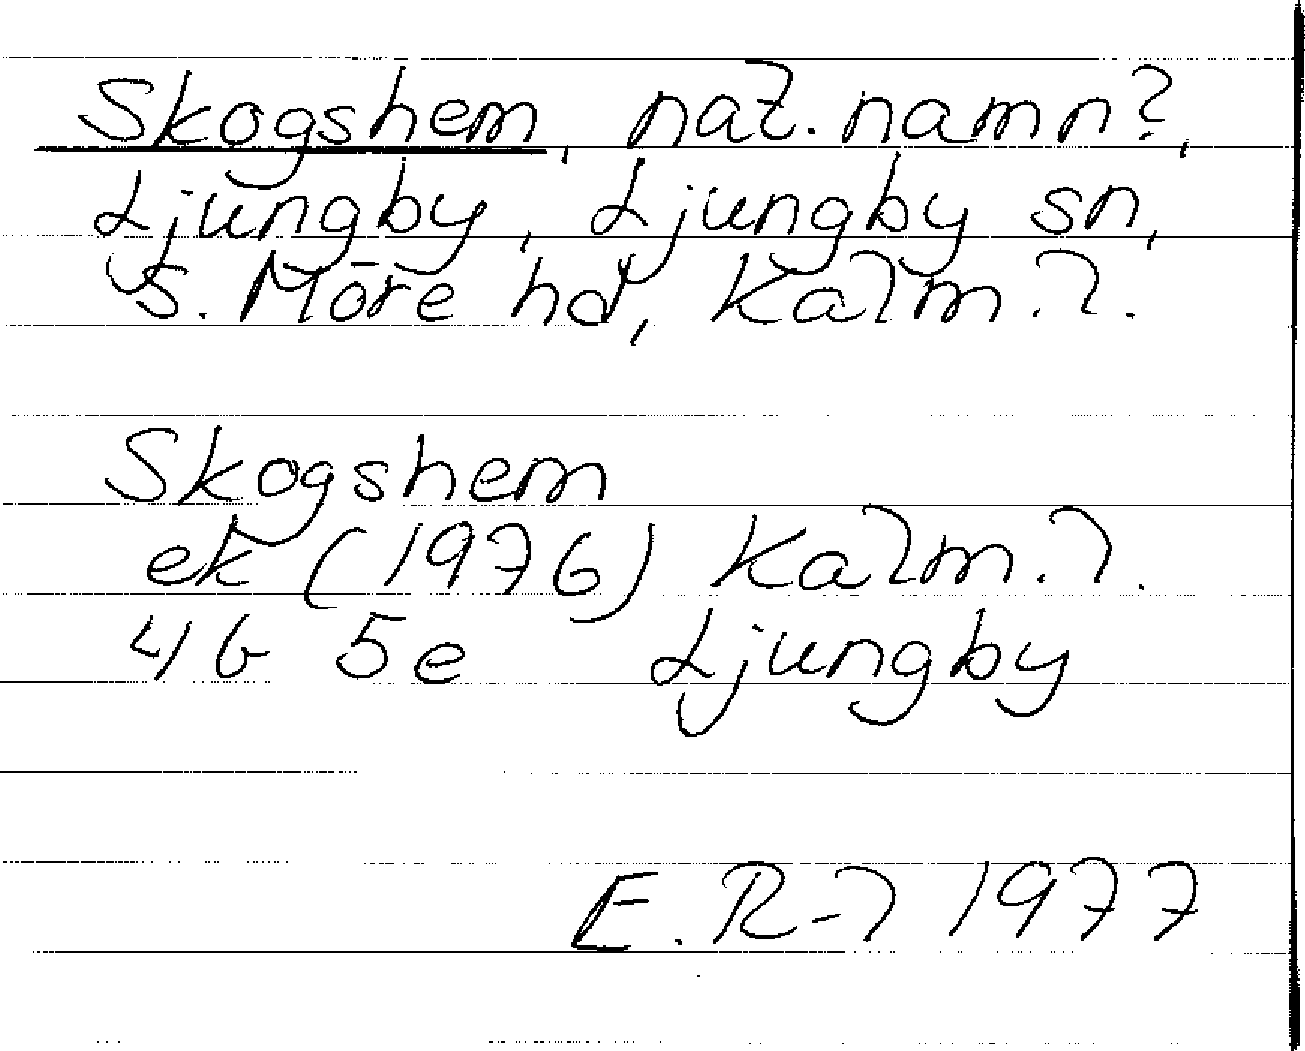 Skogshem, nat. namn?,
Ljungby, Ljungby sn,
S. Möre hd, Kalm. l.
Skogshem
ek (1976) Kalm. l.
4G 5e Ljungby
E. R-l 1977